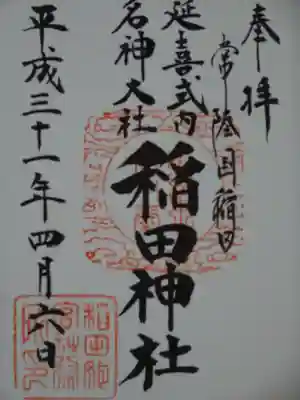 奉拝
常陸国稲田
延喜式内
名神大社
稲田神社
平成三十一年四月六日